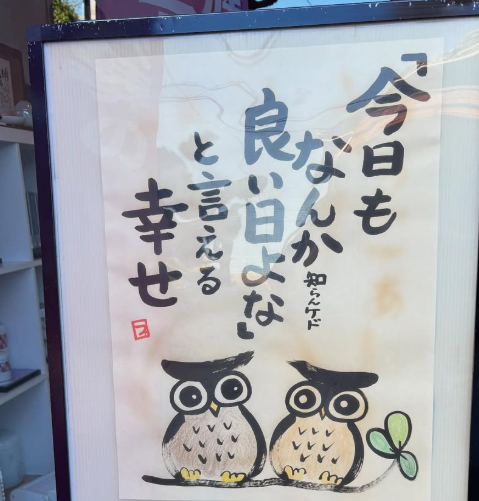 「今日も
なんか知らんケド
良い日よな」
と言える
幸せ